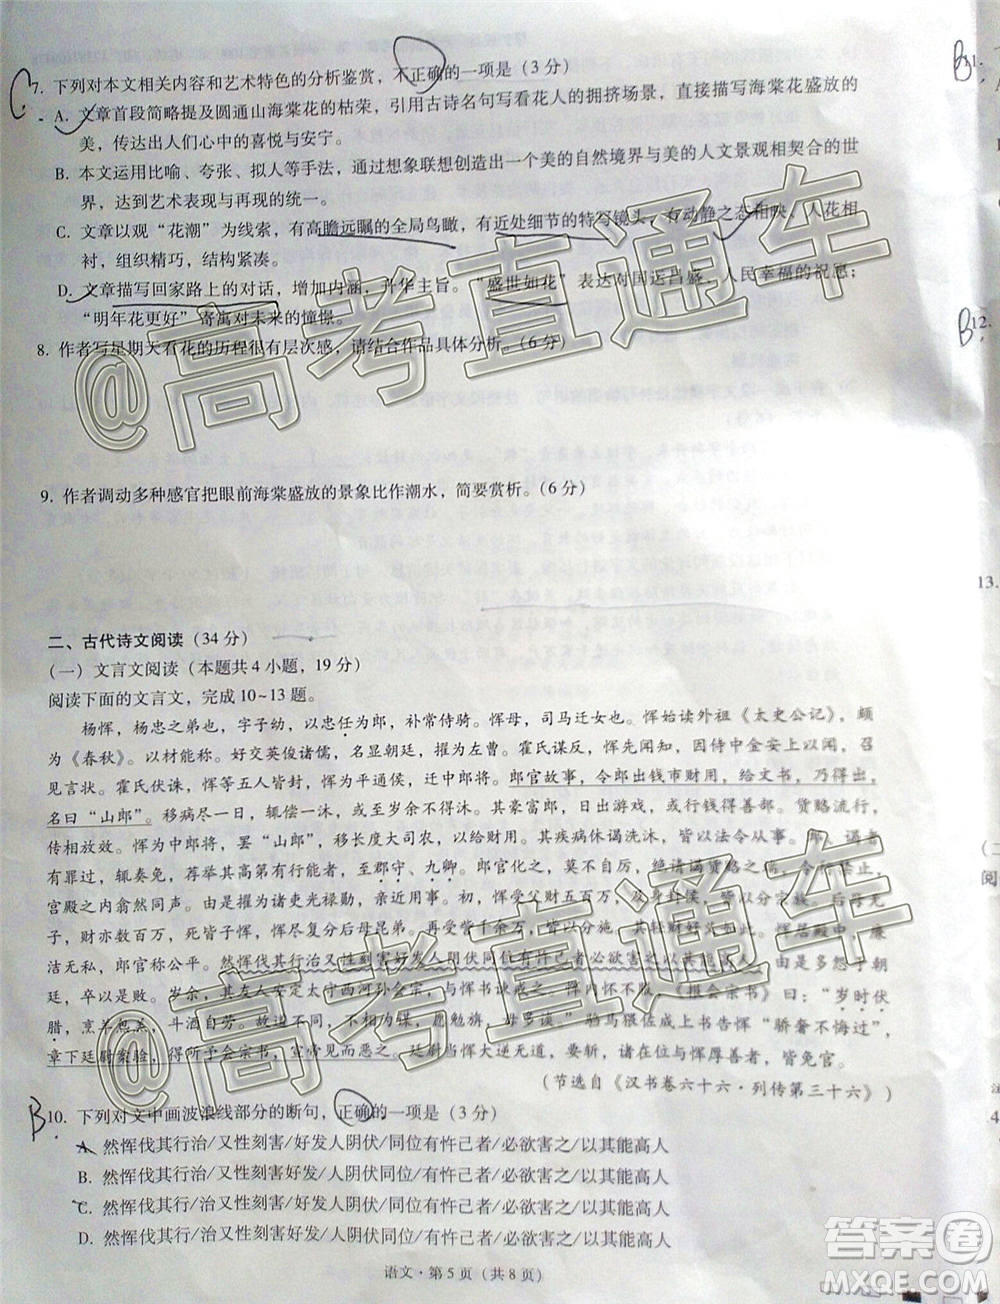 7. 下列对本文相关内容和艺术特色的分析鉴赏，不正确的一项是（3 分）
A. 文章首段简略提及圆通山海棠花的枯荣，引用古诗名句写看花人的拥挤场景，直接描写海棠花盛放的
美，传达出人们心中的喜悦与安宁。
B. 本文运用比喻、夸张、拟人等手法，通过想象联想创造出一个美的自然境界与美的人文景观相契合的世
界，达到艺术表现与再现的统一。
C. 文章以观“花潮”为线索，有高瞻远瞩的全局鸟瞰，有近处细节的特写镜头，有动静之态相映、人花相
衬，组织精巧，结构紧凑。
D. 文章描写回家路上的对话，增加内涵，升华主旨。“盛世如花”表达对国运昌盛、人民幸福的祝愿；
“明年花更好”寄寓对未来的憧憬。
8. 作者写星期天看花的历程很有层次感，请结合作品具体分析。（6 分）
9. 作者调动多种感官把眼前海棠盛放的景象比作潮水，简要赏析。（6 分）
二、古代诗文阅读（34 分）
（一）文言文阅读（本题共 4 小题，19 分）
阅读下面的文言文，完成 10～13 题。
杨恽，杨忠之弟也，字子幼，以忠任为郎，补常侍骑。恽母，司马迁女也。恽始读外祖《太史公记》，颇
为《春秋》。以材能称。好交英俊诸儒，名显朝廷，擢为左曹。霍氏谋反，恽先闻知，因侍中金安上以闻，召
见言状。霍氏伏诛，恽等五人皆封，恽为平通侯，迁中郎将。郎官故事，令郎出钱市财用，给文书，乃得出，
名曰“山郎”。移病尽一日，辄偿一沐，或至岁余不得沐。其豪富郎，日出游戏，或行钱得善部。货赂流行，
传相放效。恽为中郎将，罢“山郎”，移长度大司农，以给财用。其疾病休谒洗沐，皆以法令从事。郎、谒者
有罪过，辄奏免，荐举其高第有行能者，至郡守、九卿。郎官化之，莫不自厉，绝请谒货赂之端，令行禁止，
宫殿之内翕然同声。由是擢为诸吏光禄勋，亲近用事。初，恽受父财五百万，及身封侯，皆以分宗族。后母无
子，财亦数百万，死皆予恽，恽尽复分后母昆弟。再受訾千余万，皆以分施。其轻财好义如此。恽居殿中，廉
洁无私，郎官称公平。然恽伐其行治又性刻害好发人阴伏同位有忤己者必欲害之以其能高人。由是多怨于朝
廷，卒以是败。
腊，烹羊炰羔，斗酒自劳。
章下廷尉案验，得所予会宗书，宣帝见而恶之。廷尉当恽大逆无道，要斩，诸在位与恽厚善者，皆免官。
（节选自《汉书卷六十六·列传第三十六》）
10. 下列对文中画波浪线部分的断句，正确的一项是（3 分）
A. 然恽伐其行治/又性刻害/好发人阴伏/同位有忤己者/必欲害之/以其能高人
B. 然恽伐其行治/又性刻害/好发人阴伏同位/有忤己者/必欲害之/以其能高人
C. 然恽伐其行/治又性刻害/好发人阴伏/同位有忤己者/必欲害之/以其能高人
D. 然恽伐其行/治又性刻害好发/人阴伏同位/有忤己者/必欲害之/以其能高人
语文·第 5 页（共 8 页）
11.
B
12.
B
13.
@高考直通车
@高考直通车
答案卷
MXQE.COM